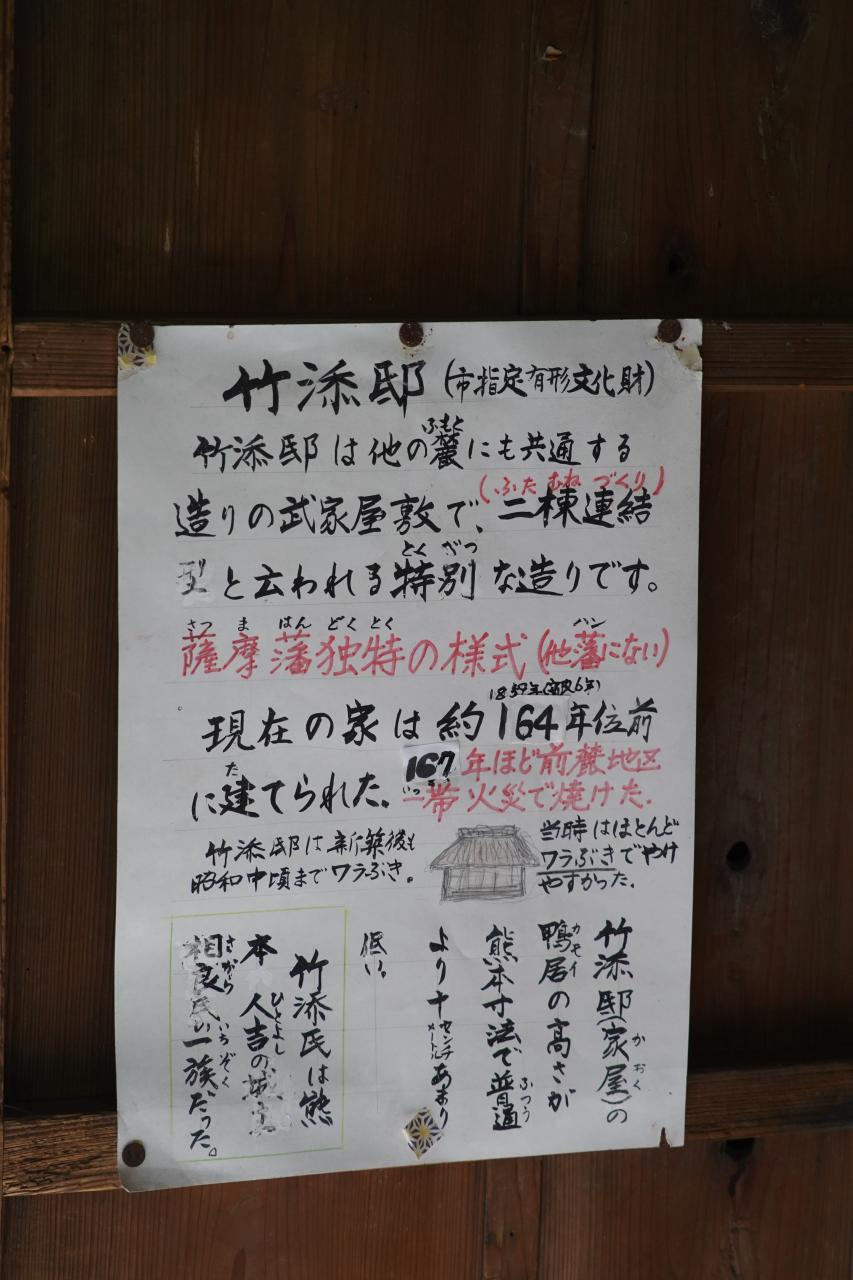 竹添邸(市指定有形文化財)
竹添邸は他の麓にも共通する
ふもと
造りの武家屋敷で、二棟連結
(ふたむねづくり)
型と云われる特別な造りです。
とくべつ
薩摩藩独特の様式(他藩にない)
さつまはんどくとく
ハン
現在の家は約164年位前
1859年(安政6年)
に建てられた。
た
167年ほど前麓地区
一帯火災で焼けた.
いったい
竹添邸は新築後も
昭和中頃までワラぶき。
当時はほとんど
ワラぶきでやけ
やすかった.
竹添邸(家屋)の
かおく
鴨居の高さが
カモイ
熊本寸法で普通
ふつう
より十センチメートルあまり
低い。
竹添氏は熊
本 人吉の城主
ひとよし
相良氏の一族だった。
さがら
いちぞく